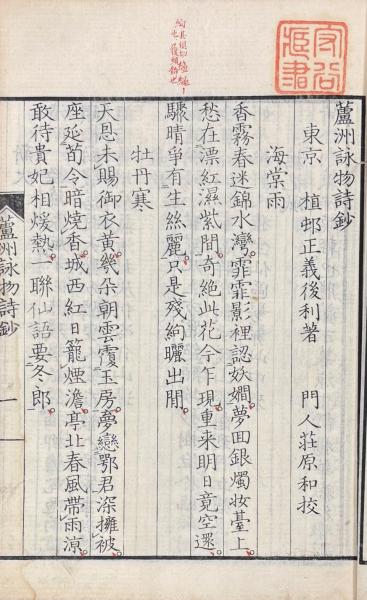 守谷臧書
蘆洲詠物詩鈔
東京 植邨正義後利著 門人莊原和挍
海棠雨
香霧春迷錦水灣霏霏影裡認妖嫺夢回銀燭妝臺上
愁在漂紅濕紫間奇絕此花今乍現重來明日竟空還
驟晴爭有生絲麗只是殘絢曬出閒
牡丹寒
天恩未賜御衣黃幾朶朝雲覆玉房夢戀鄂君深擁被
座延荀令暗燒香城西紅日籠煙澹亭北春風帶雨涼
敢待貴妃相煖熱一聯仙語要冬郎
蘆洲詠物詩鈔 一